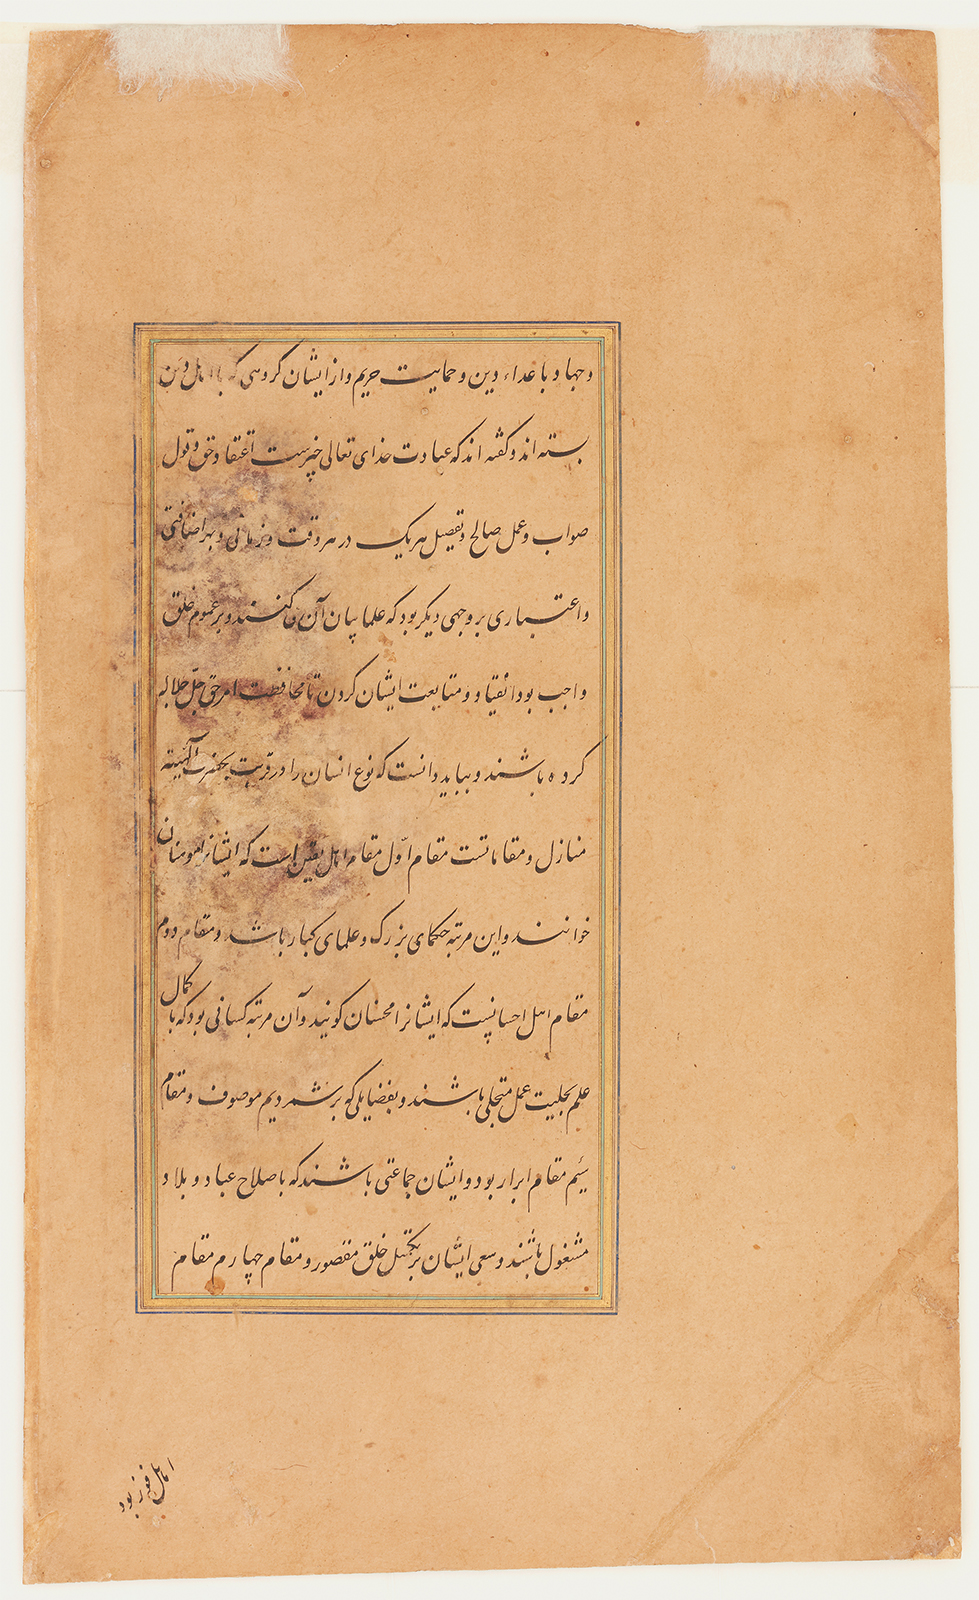 و جهاد با عداء دین و حمایت حریم و از ایشان گروهی که با اهل دین
بسته اند و گفته اند که عبادت خدای تعالی سه چیزست اعتقاد حق و قول
صواب و عمل صالح و تفصیل هریک در هر وقت و زمانی و بهر اضافتی
و اعتباری بر وجهی دیگر بود که علما بیان آن می کنند و بر عموم خلق
واجب بود انقیاد و متابعت ایشان کردن تا محافظت امر حق جل جلاله
کرده باشند و بباید دانست که نوع انسان را در قربت بحضرت الهیته
منازل و مقاماتست مقام اوّل مقام اهل یقین است که ایشانرا مومنان
خوانند و این مرتبه حکمای بزرگ و علمای کبار باشد و مقام دوم
مقام اهل احسانست که ایشانرا محسنان گویند و آن مرتبه کسانی بود که با کمال
علم بحلیت عمل متحلی باشند و بفضایلی که برشمردیم موصوف و مقام
سیم مقام ابرار بود و ایشان جماعتی باشند که باصلاح عباد و بلاد
مشغول باشند و سعی ایشان بر تکمیل خلق مقصور و مقام چهارم مقام
اهل فوز بود